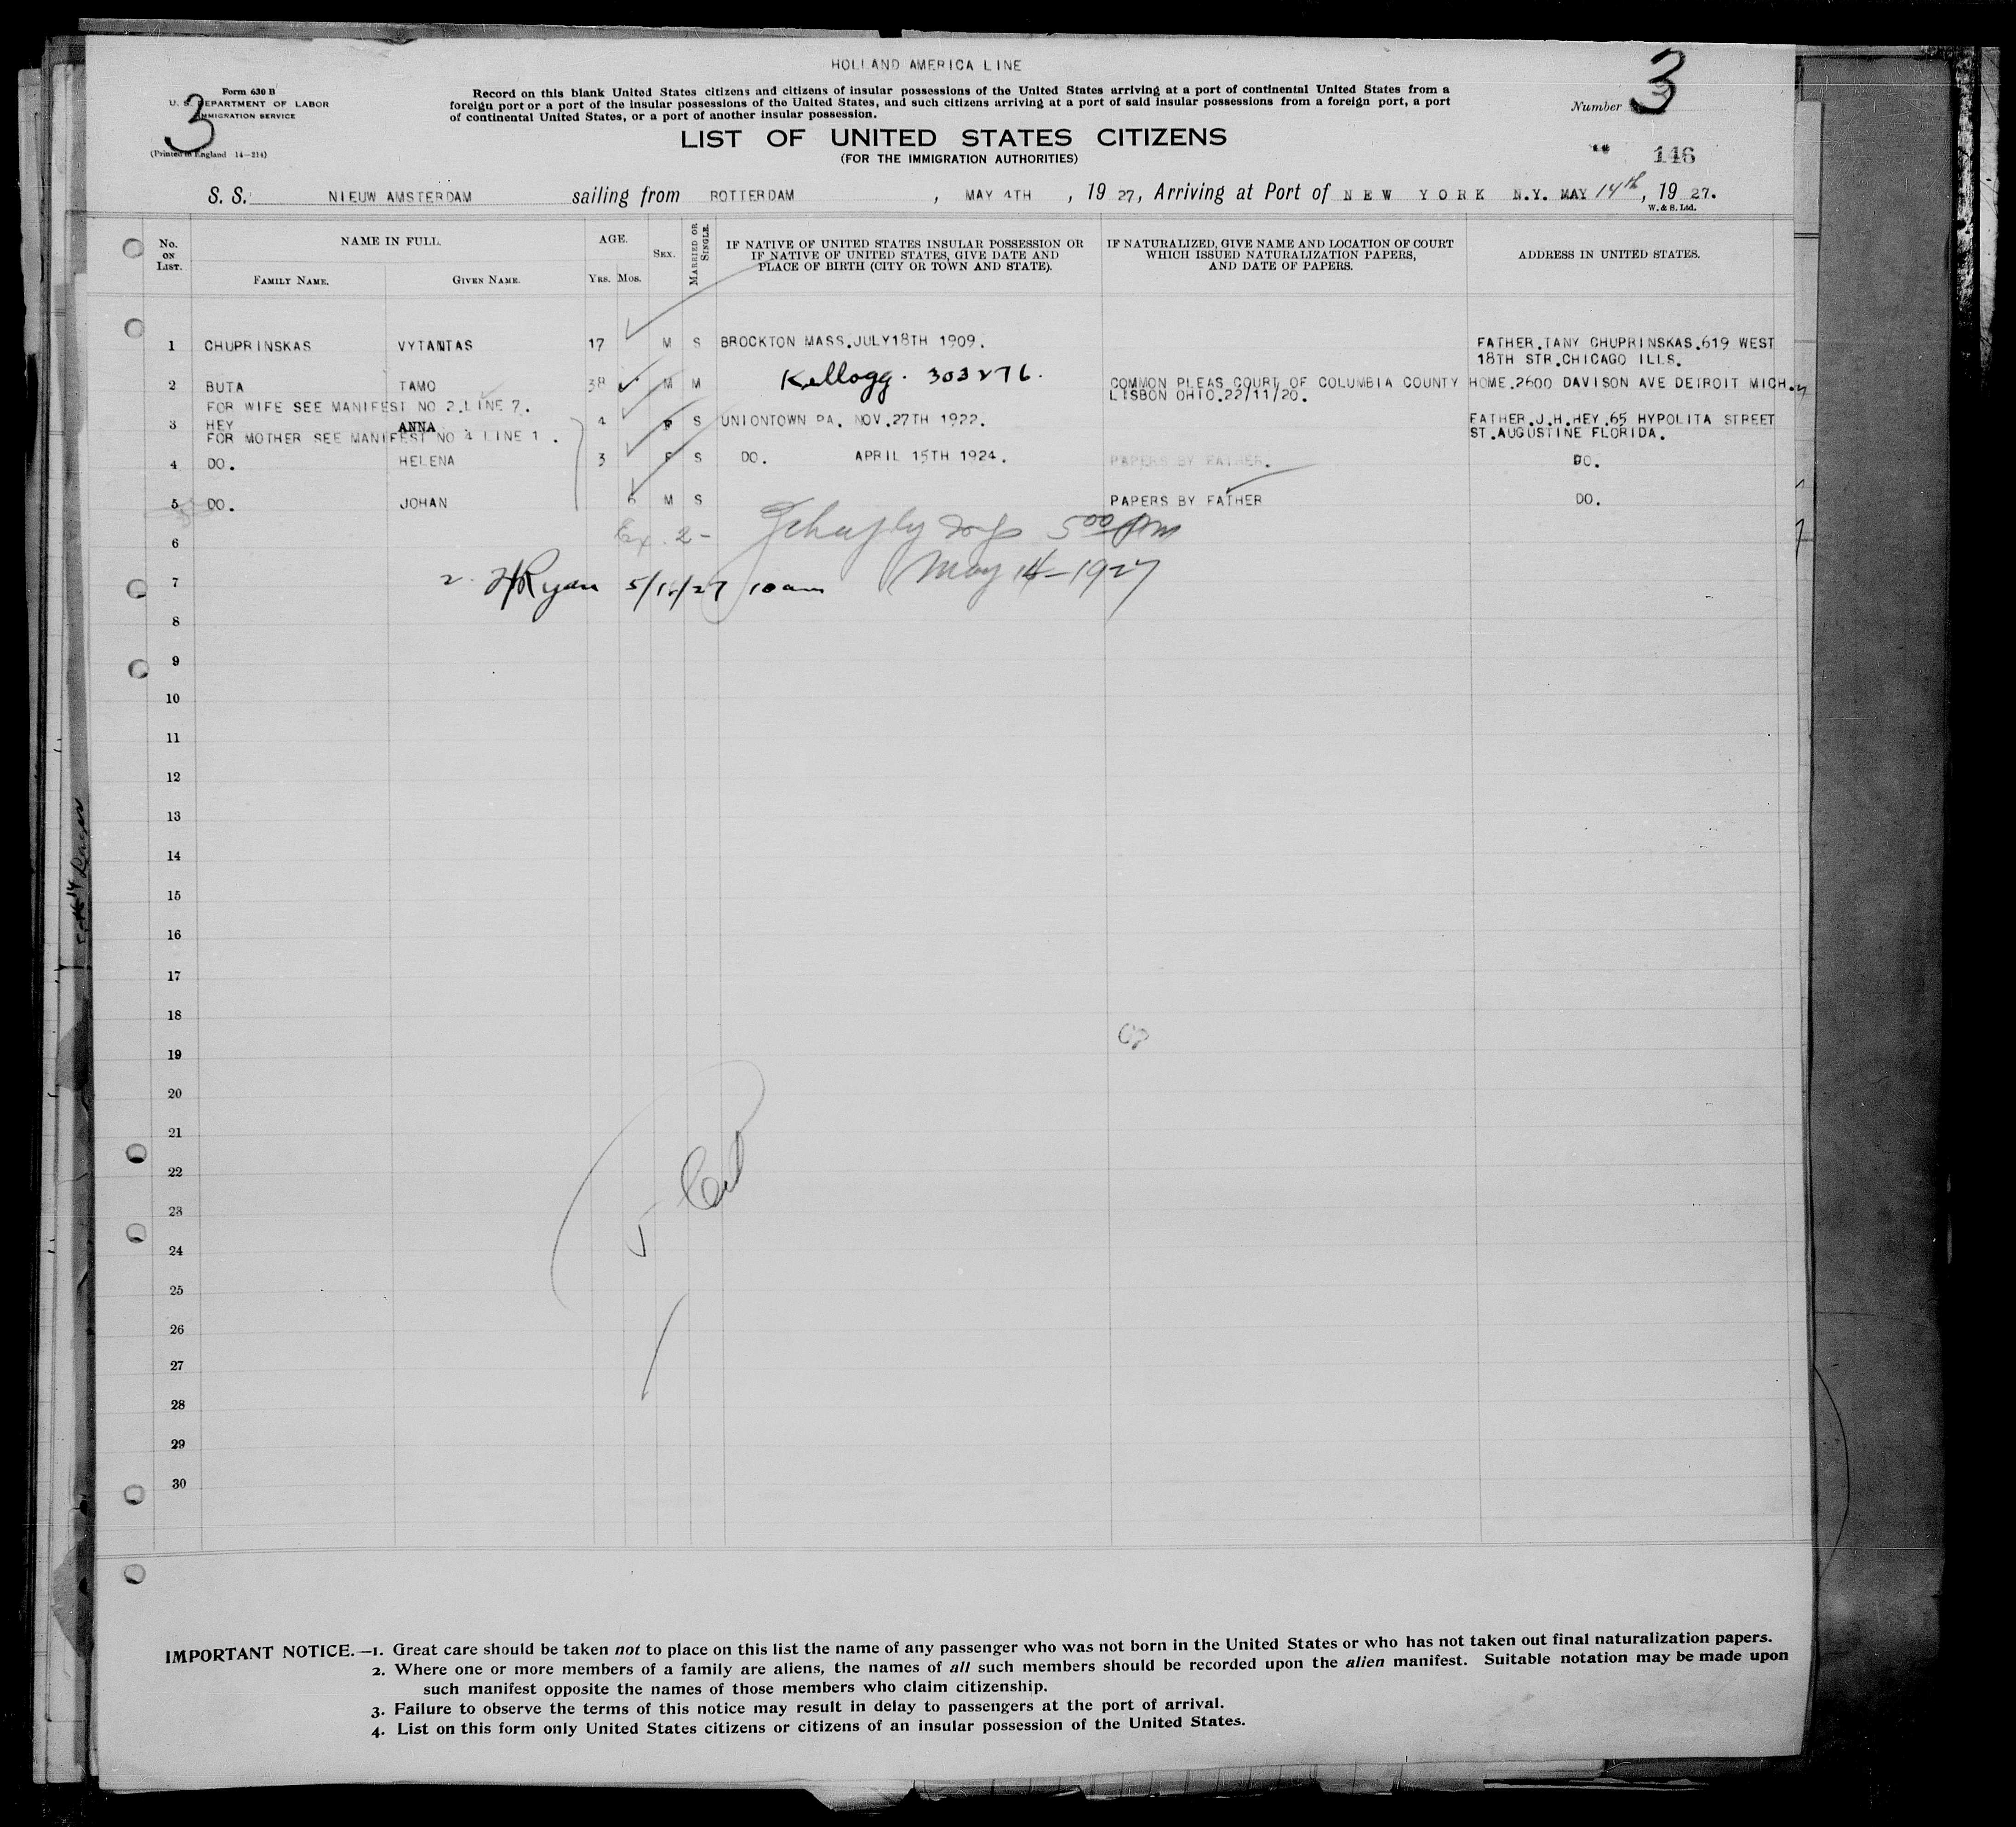 HOLLAND AMERICA LINE
Form 630 B
U. S. DEPARTMENT OF LABOR
IMMIGRATION SERVICE
3
(Printed in England 14-214)
Record on this blank United States citizens and citizens of insular possessions of the United States arriving at a port of continental United States from a
foreign port or a port of the insular possessions of the United States, and such citizens arriving at a port of said insular possessions from a foreign port, a port
of continental United States, or a port of another insular possession.
Number 3
LIST OF UNITED STATES CITIZENS
(FOR THE IMMIGRATION AUTHORITIES)
146
S. S. NIEUW AMSTERDAM sailing from ROTTERDAM , MAY 4TH , 19 27, Arriving at Port of NEW YORK N.Y. MAY 14th, 19 27.
W. & S. Ltd.
No. ON LIST.
NAME IN FULL.
FAMILY NAME. GIVEN NAME.
AGE.
YRS. MOS.
SEX.
MARRIED OR SINGLE.
IF NATIVE OF UNITED STATES INSULAR POSSESSION OR
IF NATIVE OF UNITED STATES, GIVE DATE AND
PLACE OF BIRTH (CITY OR TOWN AND STATE).
IF NATURALIZED, GIVE NAME AND LOCATION OF COURT
WHICH ISSUED NATURALIZATION PAPERS,
AND DATE OF PAPERS.
ADDRESS IN UNITED STATES.
1 CHUPRINSKAS VYTANTAS 17 M S BROCKTON MASS.JULY18TH 1909. FATHER.TANY CHUPRINSKAS.619 WEST
18TH STR.CHICAGO ILLS.
2 BUTA TAMO 38 M M Kellogg. 303276. COMMON PLEAS COURT OF COLUMBIA COUNTY HOME.2600 DAVISON AVE DETROIT MICH.
LISBON OHIO.22/11/20.
FOR WIFE SEE MANIFEST NO 2.LINE 7.
3 HEY ANNA 4 F S UNIONTOWN PA. NOV.27TH 1922. FATHER.J.H.HEY.65 HYPOLITA STREET
FOR MOTHER SEE MANIFEST NO 4 LINE 1 . ST.AUGUSTINE FLORIDA.
4 DO. HELENA 3 F S DO. APRIL 15TH 1924. PAPERS BY FATHER. DO.
5 DO. JOHAN 6 M S PAPERS BY FATHER DO.
Ex. 2- 5 00 pm
6
May 14-1927
7 2. HRyan 10 am
8
9
10
11
12
13
14
15
16
17
18
19
20
21
22
23
24
25
26
27
28
29
30
IMPORTANT NOTICE.—1. Great care should be taken not to place on this list the name of any passenger who was not born in the United States or who has not taken out final naturalization papers.
2. Where one or more members of a family are aliens, the names of all such members should be recorded upon the alien manifest. Suitable notation may be made upon
such manifest opposite the names of those members who claim citizenship.
3. Failure to observe the terms of this notice may result in delay to passengers at the port of arrival.
4. List on this form only United States citizens or citizens of an insular possession of the United States.